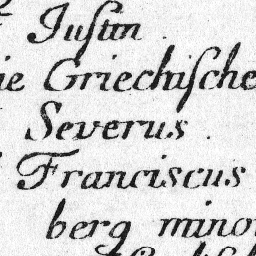 Justin
ie Griechische
Severus
Franciscus
berg mino